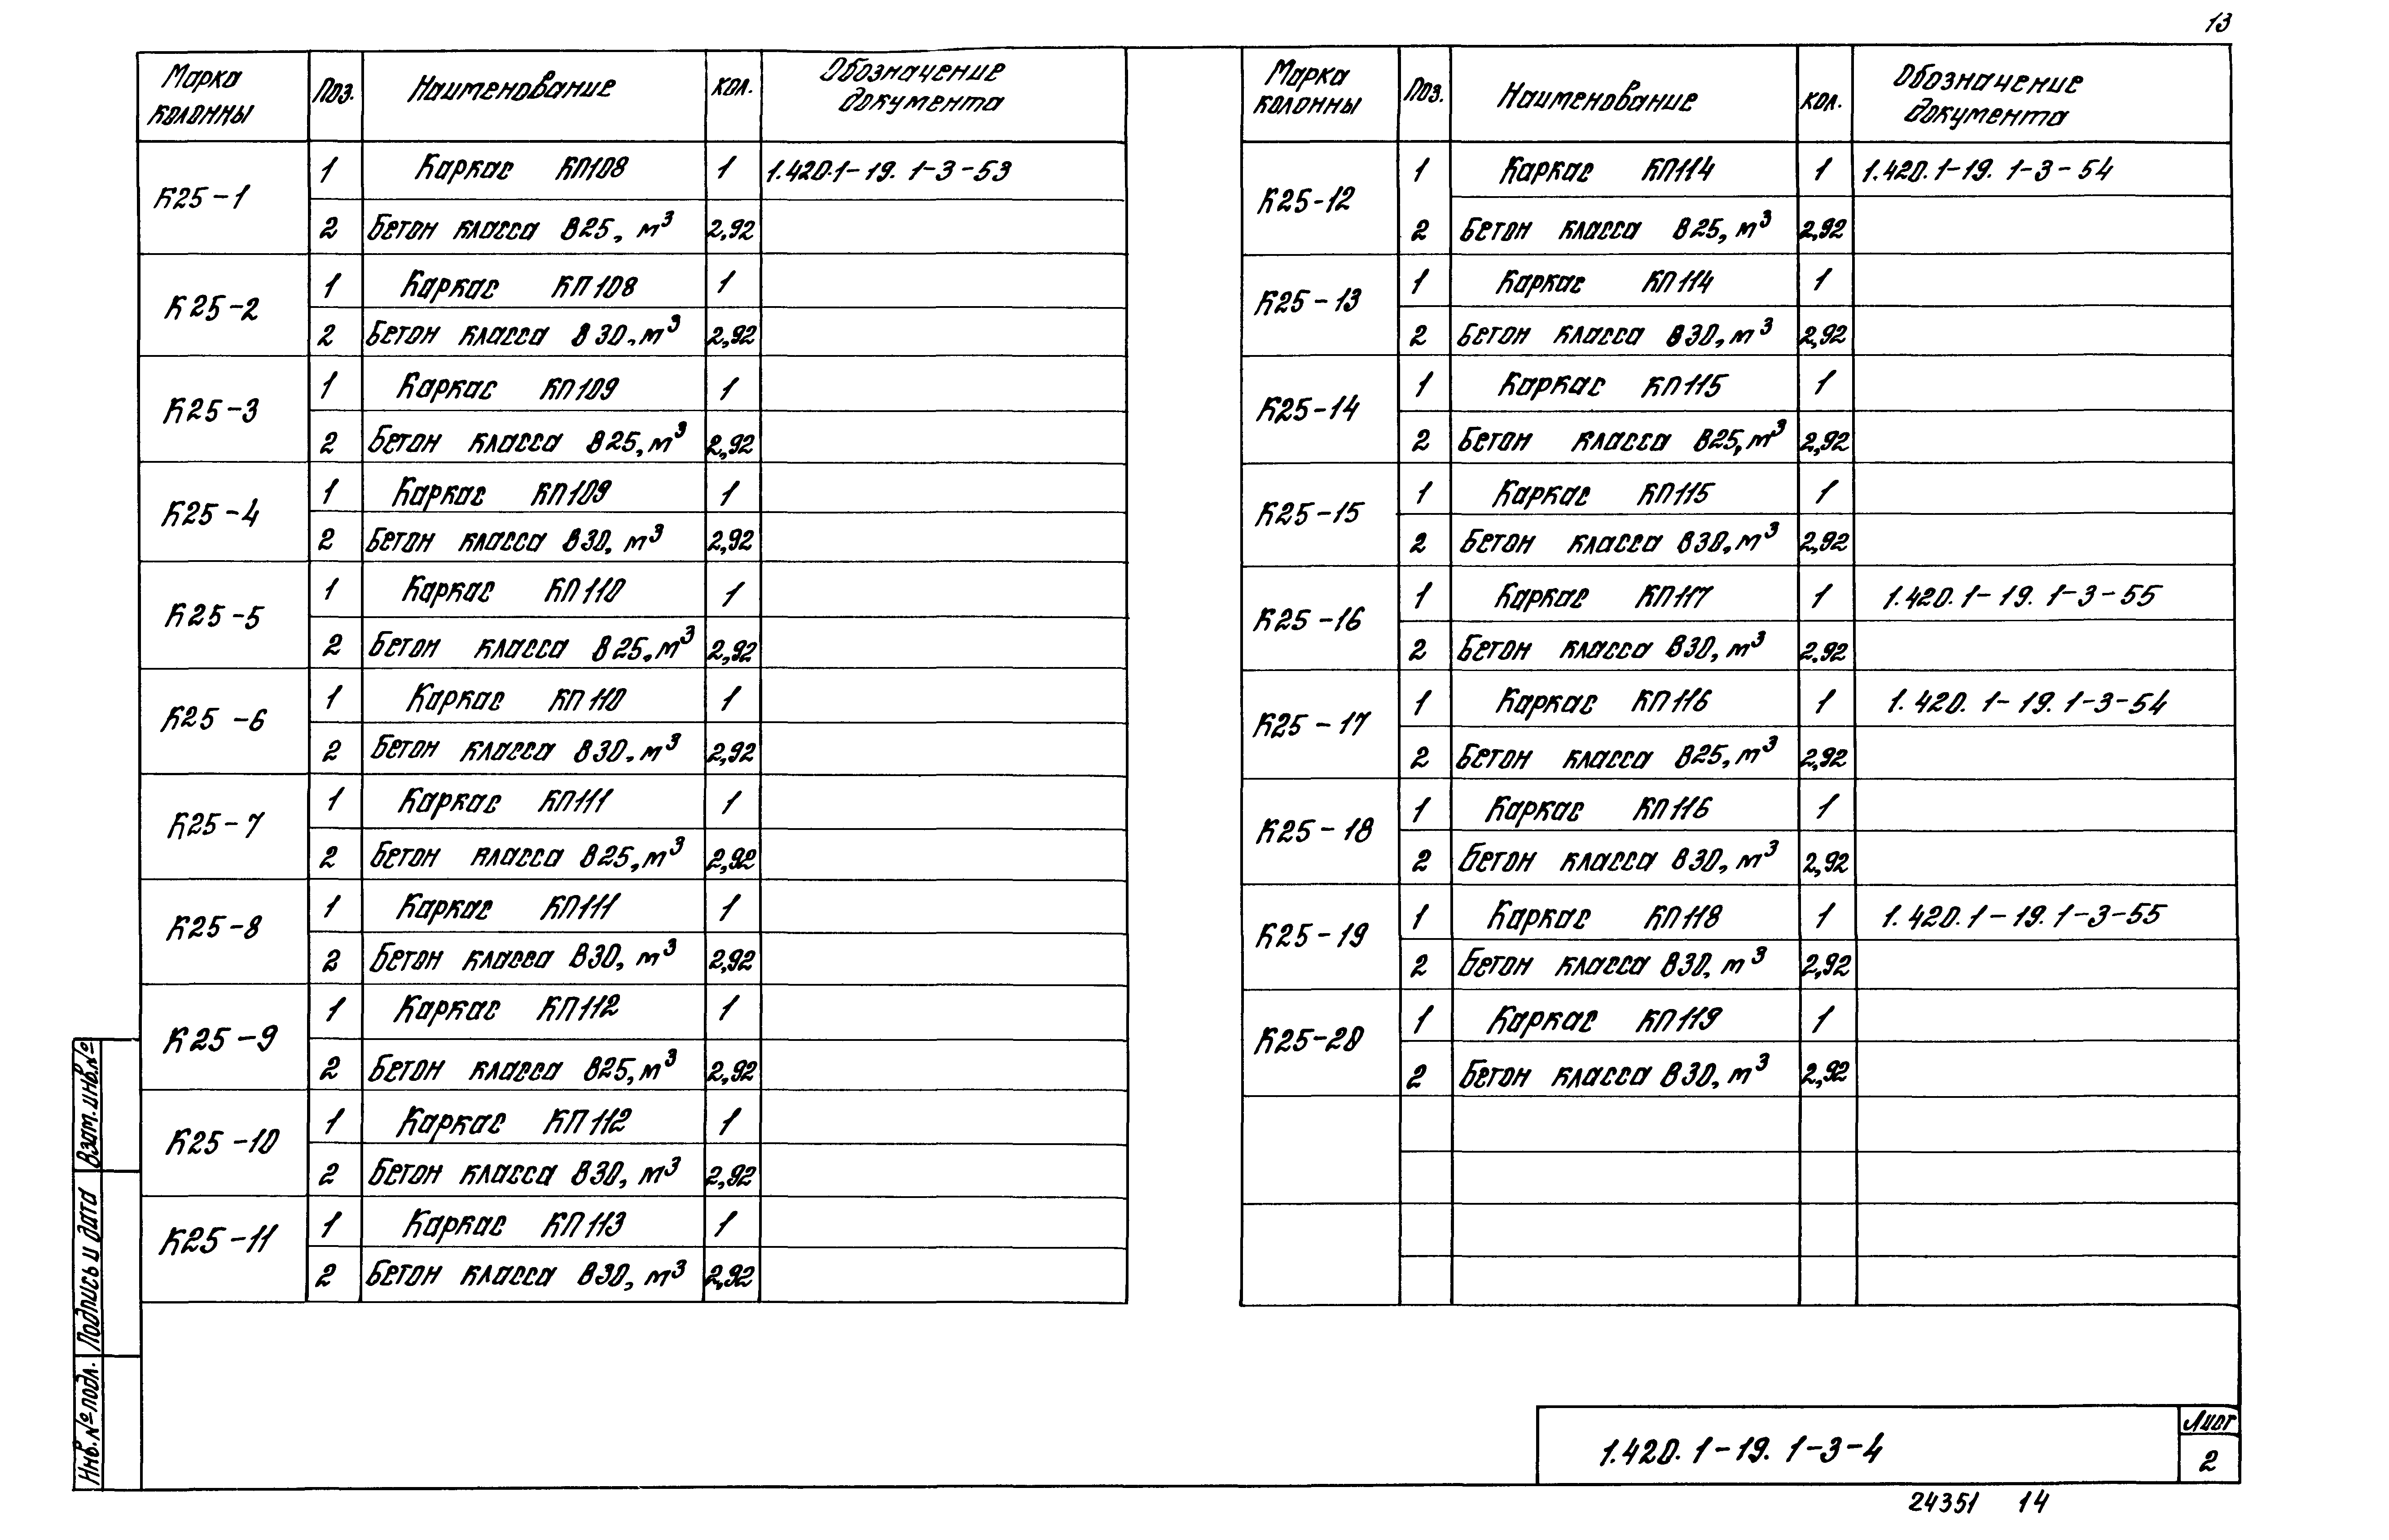 13
Марка колонны Поз. Наименование кол. Обозначение документа
К25-1 1 Каркас КП108 1 1.420.1-19. 1-3-53
2 Бетон класса В25, м³ 2,92
К25-2 1 Каркас КП108 1
2 Бетон класса В30, м³ 2,92
К25-3 1 Каркас КП109 1
2 Бетон класса В25, м³ 2,92
К25-4 1 Каркас КП109 1
2 Бетон класса В30, м³ 2,92
К25-5 1 Каркас КП110 1
2 Бетон класса В25, м³ 2,92
К25-6 1 Каркас КП110 1
2 Бетон класса В30, м³ 2,92
К25-7 1 Каркас КП111 1
2 Бетон класса В25, м³ 2,92
К25-8 1 Каркас КП111 1
2 Бетон класса В30, м³ 2,92
К25-9 1 Каркас КП112 1
2 Бетон класса В25, м³ 2,92
К25-10 1 Каркас КП112 1
2 Бетон класса В30, м³ 2,92
К25-11 1 Каркас КП113 1
2 Бетон класса В30, м³ 2,92
Марка колонны Поз. Наименование кол. Обозначение документа
К25-12 1 Каркас КП114 1 1.420.1-19. 1-3-54
2 Бетон класса В25, м³ 2,92
К25-13 1 Каркас КП114 1
2 Бетон класса В30, м³ 2,92
К25-14 1 Каркас КП115 1
2 Бетон класса В25, м³ 2,92
К25-15 1 Каркас КП115 1
2 Бетон класса В30, м³ 2,92
К25-16 1 Каркас КП117 1 1.420.1-19. 1-3-55
2 Бетон класса В30, м³ 2,92
К25-17 1 Каркас КП116 1 1.420.1-19. 1-3-54
2 Бетон класса В25, м³ 2,92
К25-18 1 Каркас КП116 1
2 Бетон класса В30, м³ 2,92
К25-19 1 Каркас КП118 1 1.420.1-19. 1-3-55
2 Бетон класса В30, м³ 2,92
К25-20 1 Каркас КП119 1
2 Бетон класса В30, м³ 2,92
Взам. инв. №
Подпись и дата
Инв. № подл.
1.420.1-19. 1-3-4
Лист
2
24351 14